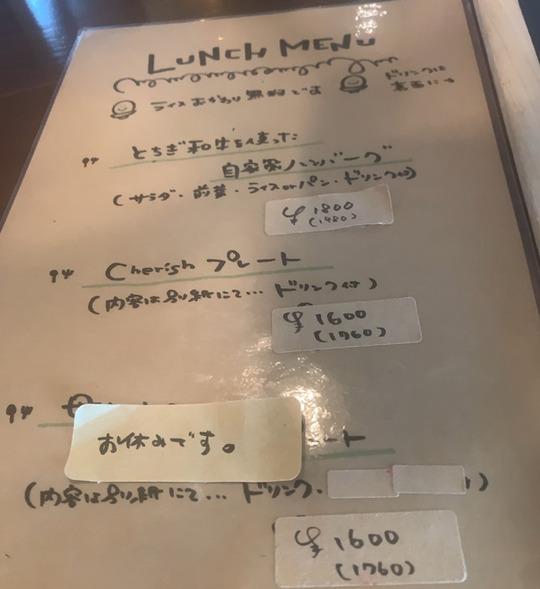 LUNCH MENU
ライスおかわり無料です
ドリンクは
裏面に→
とちぎ和牛を使った
自家製ハンバーグ
(サラダ・前菜・ライスorパン・ドリンク付)
¥1800
(1980)
Cherish プレート
(内容は別紙にて… ドリンク付)
¥1600
(1760)
お休みです。
ート
(内容は別紙にて… ドリンク・
)
¥1600
(1760)